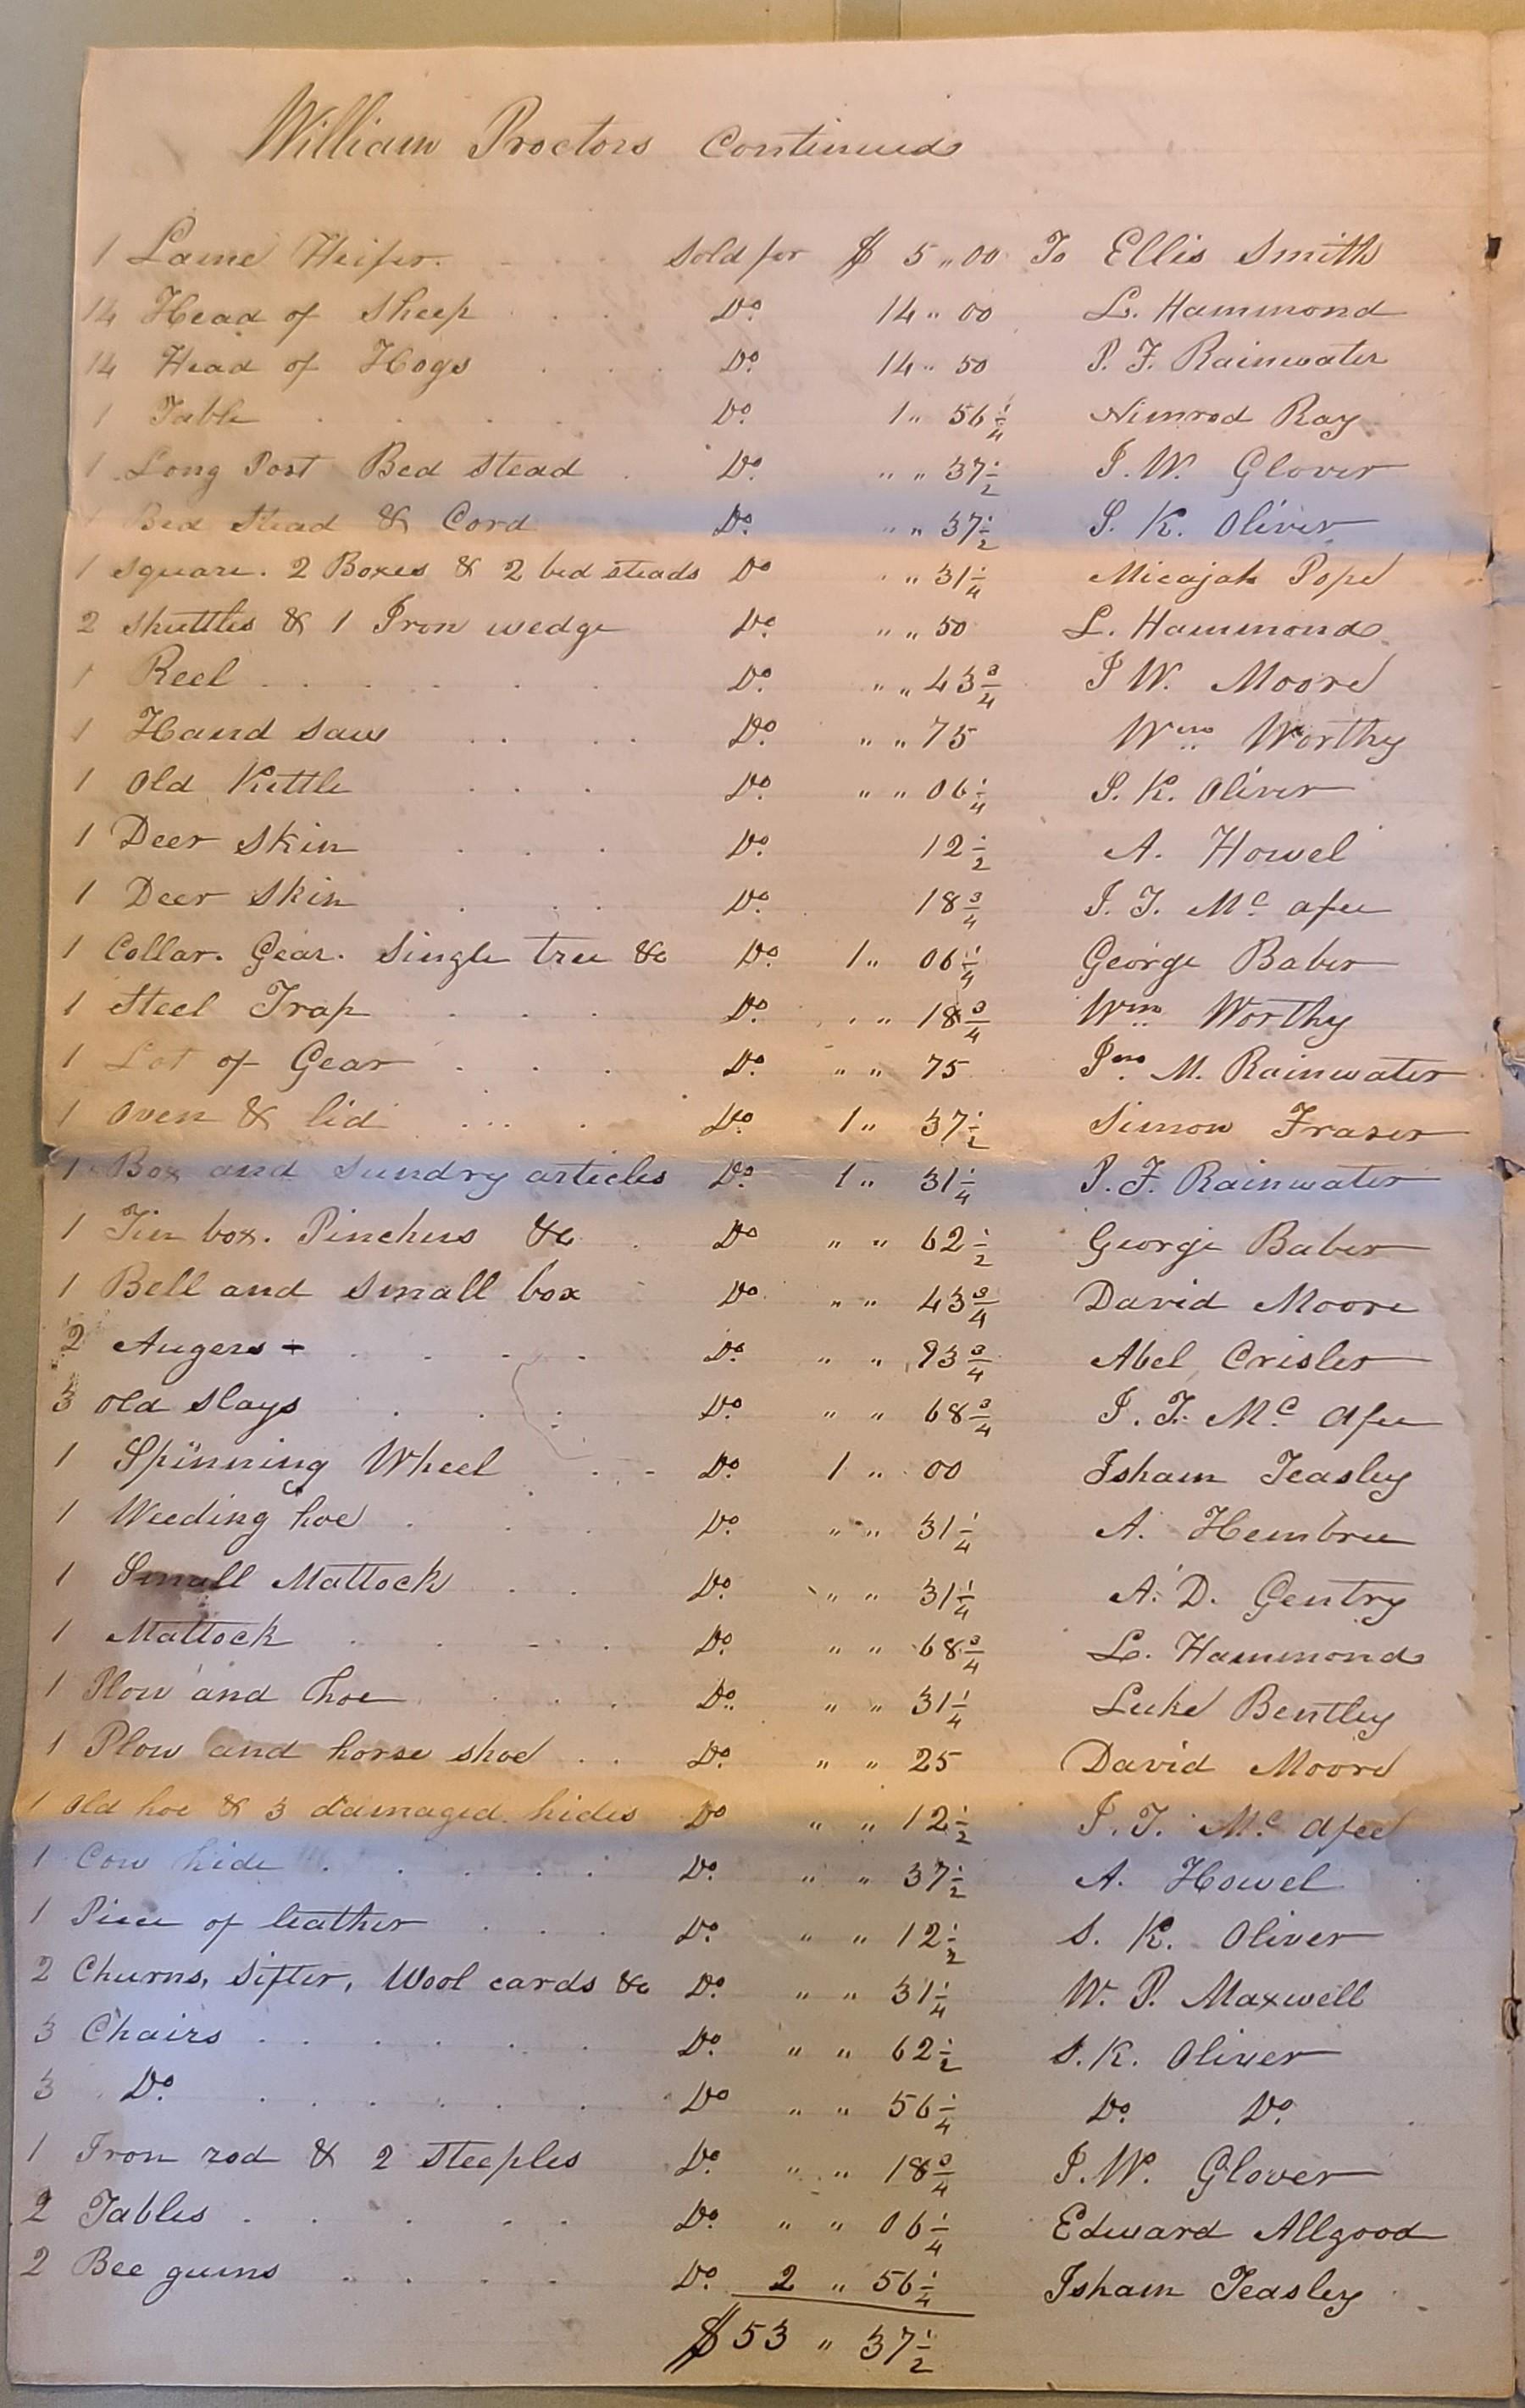 William Proctors Continued
1 Lame Heifer. Sold for $ 5 „ 00 To Ellis Smith
14 Head of Sheep Do. 14 „ 00 L. Hammond
14 Head of Hogs Do. 14 „ 50 P. F. Rainwater
1 Table Do. 1 „ 56 1/4 Nimrod Ray
1 Long Post Bed Stead Do. „ „ 37 1/2 J. W. Glover
1 Bed Stead & Cord Do. „ „ 37 1/2 S. K. Oliver
1 Square. 2 Boxes & 2 bed steads Do „ „ 31 1/4 Micajah Pope
2 Shuttles & 1 Iron wedge Do. „ „ 50 L. Hammond
1 Reel Do. „ „ 43 3/4 J W. Moore
1 Hand Saw Do. „ „ 75 Wm Worthy
1 Old Kettle Do. „ „ 06 1/4 S. K. Oliver
1 Deer Skin Do. 12 1/2 A. Howel
1 Deer Skin Do. 18 3/4 J. T. Mc afee
1 Collar. Gear. Single tree &c Do. 1 „ 06 1/4 George Baber
1 Steel Trap Do. „ „ 18 3/4 Wm Worthy
1 Lot of Gear Do. „ „ 75 Jno. M. Rainwater
1 Oven & lid Do. 1 „ 37 1/2 Simon Fraser
1 Box and Sundry articles Do. 1 „ 31 1/4 P. F. Rainwater
1 Tin box. Pinchers &c Do „ „ 62 1/2 George Baber
1 Bell and Small box Do. „ „ 43 3/4 David Moore
2 Augers Do. „ „ 93 3/4 Abel Crisler
3 old Slays Do. „ „ 68 3/4 J. T. Mc Afee
1 Spinning Wheel Do. 1 „ 00 Isham Teasley
1 Weeding hoe Do. „ „ 31 1/4 A. Hembree
1 Small Mattock Do. „ „ 31 1/4 A. D. Gentry
1 Mattock Do. „ „ 68 3/4 L. Hammond
1 Plow and hoe Do. „ „ 31 1/4 Luke Bentley
1 Plow and horse shoe Do. „ „ 25 David Moore
1 Old hoe & 3 damaged hides Do „ „ 12 1/2 J. T. Mc Afee
1 Cow hide Do. „ „ 37 1/2 A. Howel
1 Piece of leather Do. „ „ 12 1/2 S. K. Oliver
2 Churns, Sifter, Wool cards &c Do. „ „ 31 1/4 W. P. Maxwell
3 Chairs Do. „ „ 62 1/2 S. K. Oliver
3 Do. Do „ „ 56 1/4 Do. Do.
1 Iron rod & 2 Steeples Do. „ „ 18 3/4 J. W. Glover
2 Tables Do. „ „ 06 1/4 Edward Allgood
2 Bee gums Do. 2 „ 56 1/4 Isham Teasley
$ 53 „ 37 1/2